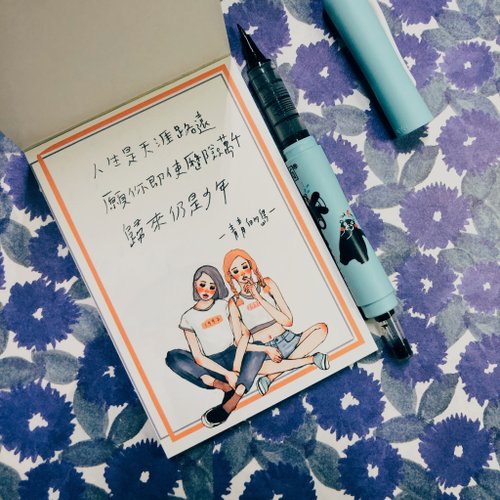 人生是天涯路遠
願你即使歷險萬千
歸來仍是少年
1992